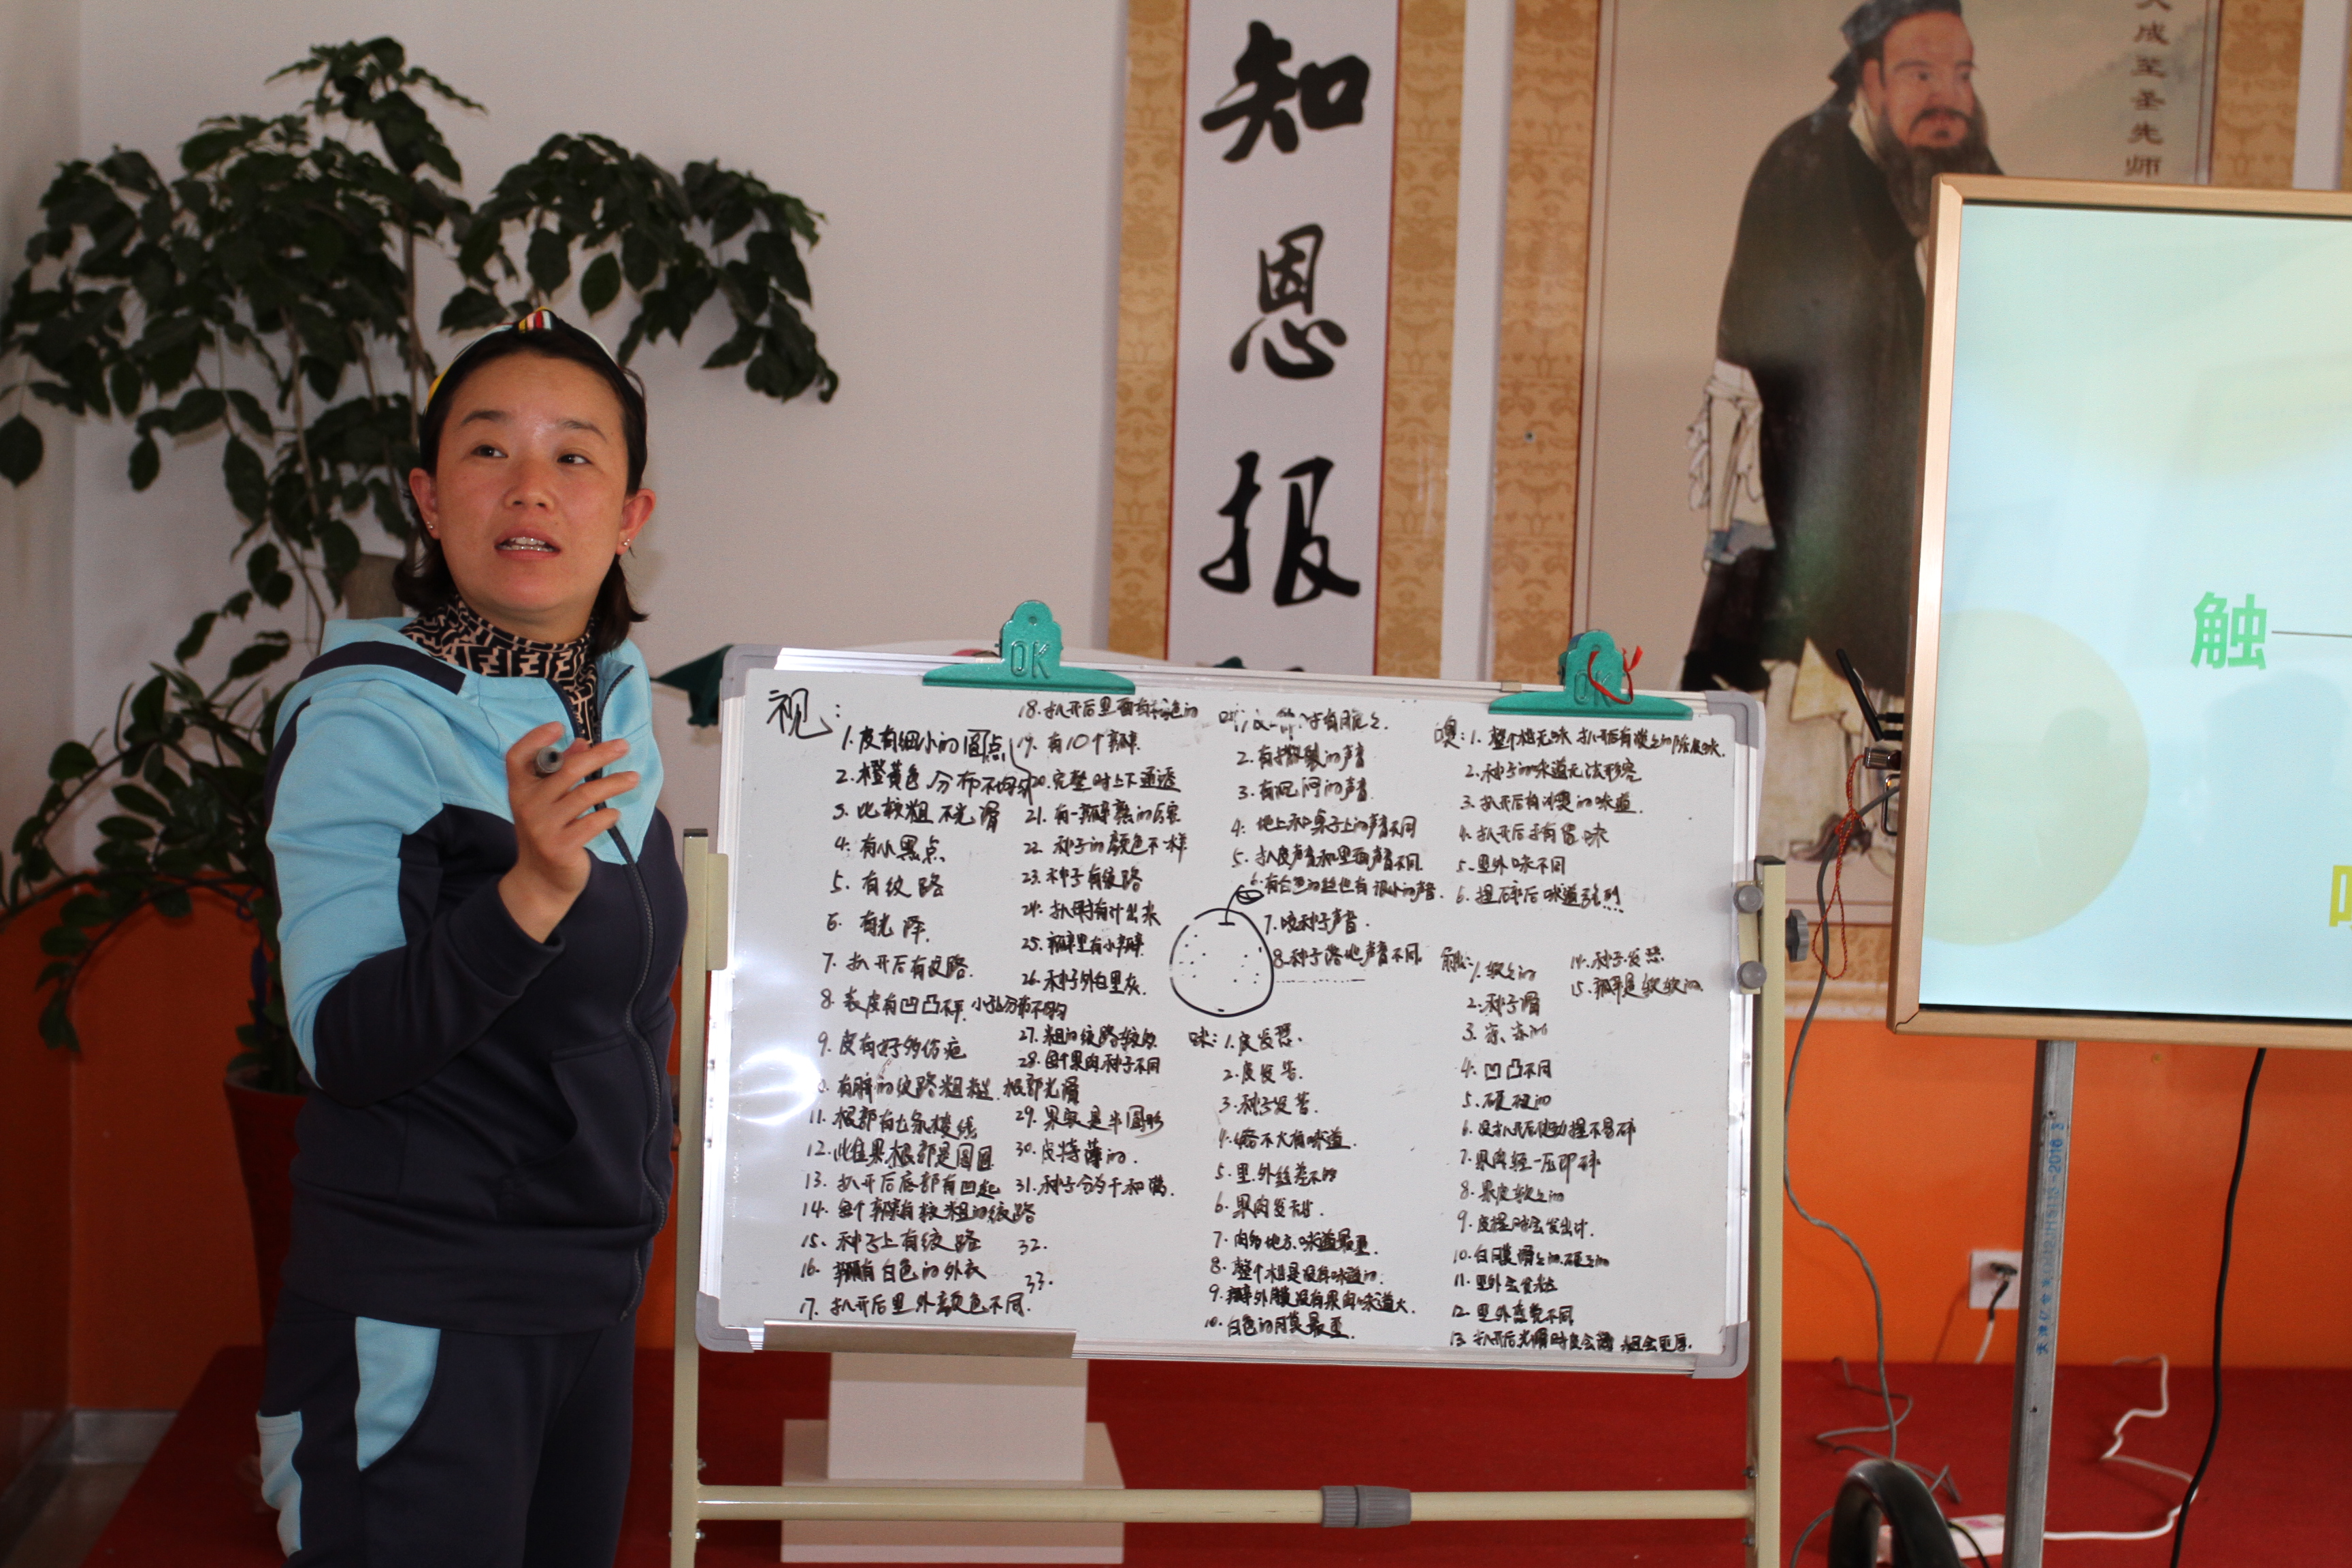 知
恩
报
成至圣先师
触
OK
OK
视:
1. 皮有细小的圆点
2. 橙黄色 分布不均匀
3. 比较粗 不光滑
4. 有小黑点
5. 有纹路
6. 有光泽
7. 扒开后有纹路.
8. 表皮有凹凸不平, 小孔分布不均匀
9. 皮有好多伤疤
有脐的纹路粗糙, 根部光滑
11. 根部有七条棱线
12. 根部是圆
13. 扒开后底部有凹起
14. 每个瓣有较粗的纹路
15. 种子上有纹路
16. 瓣有白色的外衣
17. 扒开后里外颜色不同.
18. 扒开后里面有色的
19. 有10个瓣.
20. 完整时上下通透
21. 有一瓣熟的厉害
22. 种子的颜色不一样
23. 种子有纹路
24. 扒时有汁出来
25. 瓣里有小瓣
26. 种子外白里灰.
27. 粗的纹路较多
28. 每个果肉种子不同
29. 果实是半圆形
30. 皮特薄的.
31. 种子分为干和满.
32.
33.
听:
2. 有撕裂的声音
3. 有沉闷的声音
4. 地上和桌子上的声音不同
5. 扒皮声音和里面声音不同.
6. 有白色的丝也有很小的声音.
7. 咬种子声音.
8. 种子落地声音不同.
嗅: 1. 整个桔无味 扒开后有酸酸的陈皮味.
2. 种子的味道无法形容
3. 扒开后有刺鼻的味道.
4. 扒开后手有留味
5. 里外味不同
6. 捏碎后味道强烈
味: 1. 皮发涩.
2. 皮发苦.
3. 种子发苦.
4. 不太有味道.
5. 里.外丝差不多
6. 果肉发甜.
7. 肉多地方.味道最重.
8. 整个桔是没有味道的.
9. 瓣外膜没有果肉味道大.
10. 白色的膜最重.
触: 1. 软软的
2. 种子滑
3. 凉.凉的
4. 凹凸不同
5. 硬硬的
6. 没扒开后使劲捏不易碎
7. 果肉轻一压即碎
8. 果皮软软的
9. 皮捏时会发出汁.
10. 白膜滑滑的.硬硬的
11. 里外会发粘
12. 里外感觉不同
13. 扒开后光滑时皮会薄 粗会更厚.
14. 种子发涩
15. 瓣是软软的.